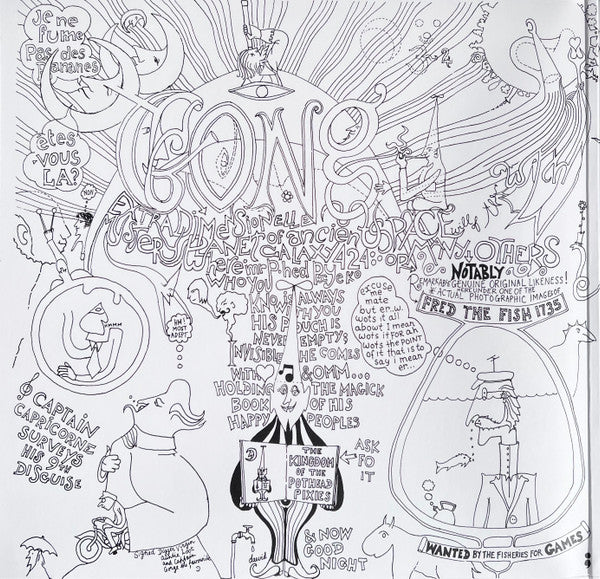 Je ne
fume
Pas des
Bananes
êtes
vous
LA?
NON
GONG
EXTRADIMENSIONELLE
of ancient SPACE
GALAXY 424
WHO YOU
KNOW is ALWAYS
WITH YOU
HIS POUCH is
NEVER EMPTY;
INVISIBLE HE COMES
WITH & OMM...
HOLDING THE MAGICK
BOOK OF HIS
HAPPY PEOPLES
with
MANY OTHERS
NOTABLY
REMARKABLE GENUINE ORIGINAL LIKENESS!
HEREUNDER ONE OF THE
ACTUAL PHOTOGRAPHIC IMAGES OF
FRED THE FISH 1735
excuse me
mate
but er..w.
wots it all
about I mean
wots it for ah
wots the POINT
of it that is to
say i mean
er...
hmmm
AH!
MOST
ADEPT
CAPTAIN
CAPRICORNE
SURVEYS
HIS 9TH
DISGUISE
THE
KINGDOM
OF THE
POTHEAD
PIXIES
ASK
FO
IT
& NOW
GOOD
NIGHT
david
Signed Dingo Virgin
WANTED BY THE FISHERIES FOR GAMES!